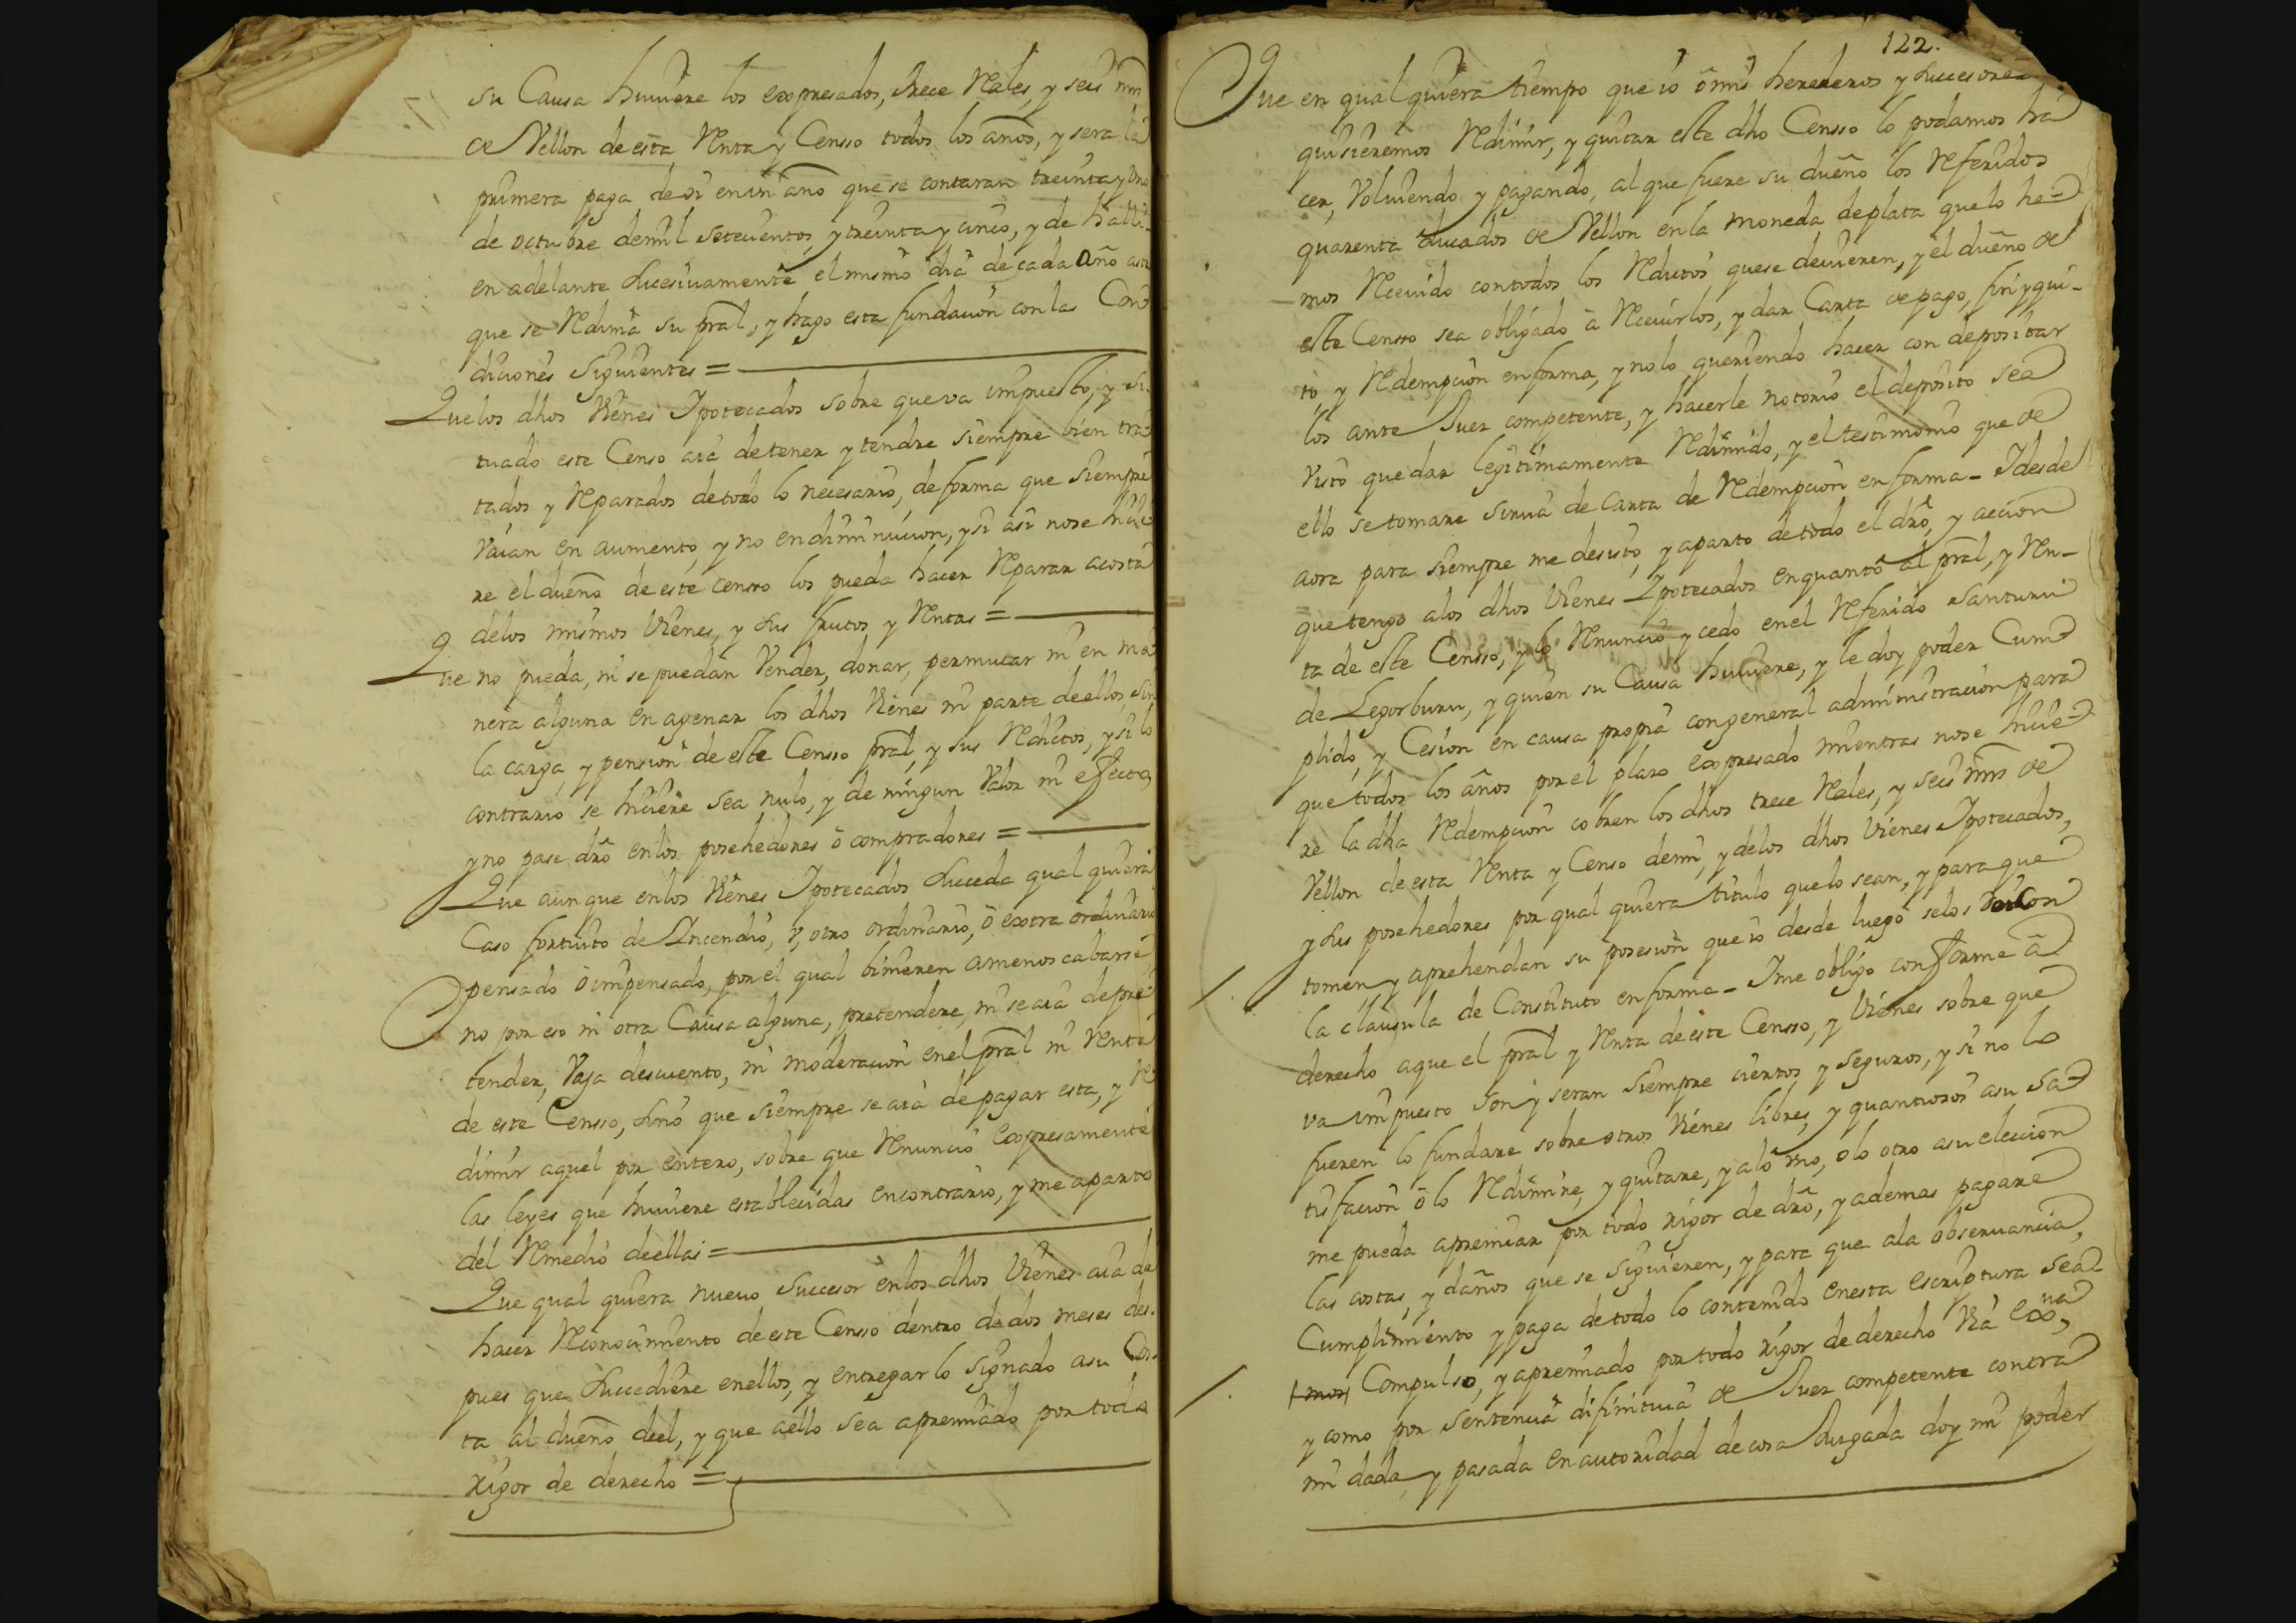 su Causa huuiere los expresados, trece Reales, y seis mrs
de Vellon de esta Renta y Censso todos los años, y sera la
primera paga de oi en un año que se contaran treinta y uno
de octubre de mil setecientos, y treinta y cinco, y de halli
en adelante sucesiuamente el mismo dia de cada año asta
que se Redima su pral, y hago esta fundacion con las Con
diciones siguientes =
Que los dhos Vienes Ipotecados sobre que va impuesto, y si
tuado este Censo aia de tener y tendre siempre bien tra
tados y Reparados de todo lo necesario, de forma que siempre
vaian en aumento, y no en diminucion, y si asi no se hicie
re el dueño de este censso los pueda hacer Reparar a costa
de los mismos Vienes, y sus frutos y Rentas =
Que no pueda, ni se puedan Vender, donar, permutar ni en ma
nera alguna en agenar los dhos Vienes ni parte de ellos, sin
la carga, y pension de este Censso pral, y sus Reditos, y si lo
contrario se hiciere sea nulo, y de ningun Valor ni efecto,
y no pase dro en los posehedores ô compradores =
Que aunque en los Vienes Ipotecados suceda qual quiera
Caso fortuito de Incendio, y, otro ordinario, ô extra ordinario
pensado ô impensado, por el qual binieren a menoscabarse
no por eso ni otra Causa alguna, pretendere, ni se aia de pre
tender, Vaja descuento, ni moderacion en el pral ni Renta
de este Censso, sino que siempre se aia de pagar esta, y Re
dimir aquel por entero, sobre que Renuncio expresamente
las leyes que huuiere establecidas en contrario, y me aparto
del Remedio de ellas =
Que qual quiera nueuo Succesor en los dhos Vienes aia de
hacer Reconocimiento de este Censso dentro de dos meses des
pues que Succediere en ellos, y entregarlo signado a su Cos
ta al dueño deel, y que a ello sea apremiado por todo
rigor de derecho =
122.
Que en qual quiera tiempo que io ô mis herederos y subcesores
quisieremos Redimir, y quitar este dho Censso lo podamos ha
cer, Voluiendo y pagando, al que fuere su dueño los Referidos
quarenta ducados de Vellon en la moneda de plata que lo he
mos Receuido con todos los Reditos que se deuieren, y el dueño de
este Censso sea obligado â Receuirlos, y dar Carta de pago, fin y qui-
to, y Redempcion en forma, y no lo queriendo hacer con depositar
los ante Juez competente, y hacerle notorio el deposito sea
visto quedar legitimamente Redimido, y el testimonio que de
ello se tomare sirua de Carta de Redempcion en forma - I desde
aora para siempre me desisto, y aparto de todo el dro, y accion
que tengo a los dhos Vienes Ipotecados en quanto al pral, y Ren-
ta de este Censso, y lo Renuncio y cedo en el Referido Santurui
de Legorburu, y quien su Causa huuiere, y le doy poder Cum
plido, y Cesion en causa propia con general administracion para
que todos los años por el plazo expresado mientras no se hicie
re la dha Redempcion cobren los dhos trece Reales, y seis mrs de
Vellon de esta Renta y Censo de mi, y de los dhos Vienes Ipotecados,
y sus posehedores por qual quiera titulo que lo sean, y para que
tomen y aprehendan su posesion que io desde luego se los doi con
la clausula de Constituto en forma - I me obligo conforme â
derecho a que el pral y Renta de este Censso, y Vienes sobre que
va impuesto son y seran siempre ciertos, y seguros, y si no lo
fueren lo fundare sobre otros Vienes libres, y quantiosos a su sa
tisfacion ô lo Redimire, y quitare, y a lo vno, o lo otro a su eleccion
me pueda apremiar por todo rigor de dro, y ademas pagare
las costas, y daños que se siguieren, y para que a la obseruancia,
Cumplimiento y paga de todo lo contenido en esta escriptura sea
Compulso, y apremiado por todo rigor de derecho Via exva,
y como por sentencia difinitiua de Juez competente contra
mi dada, y pasada en autoridad de cosa Juzgada doy mi poder